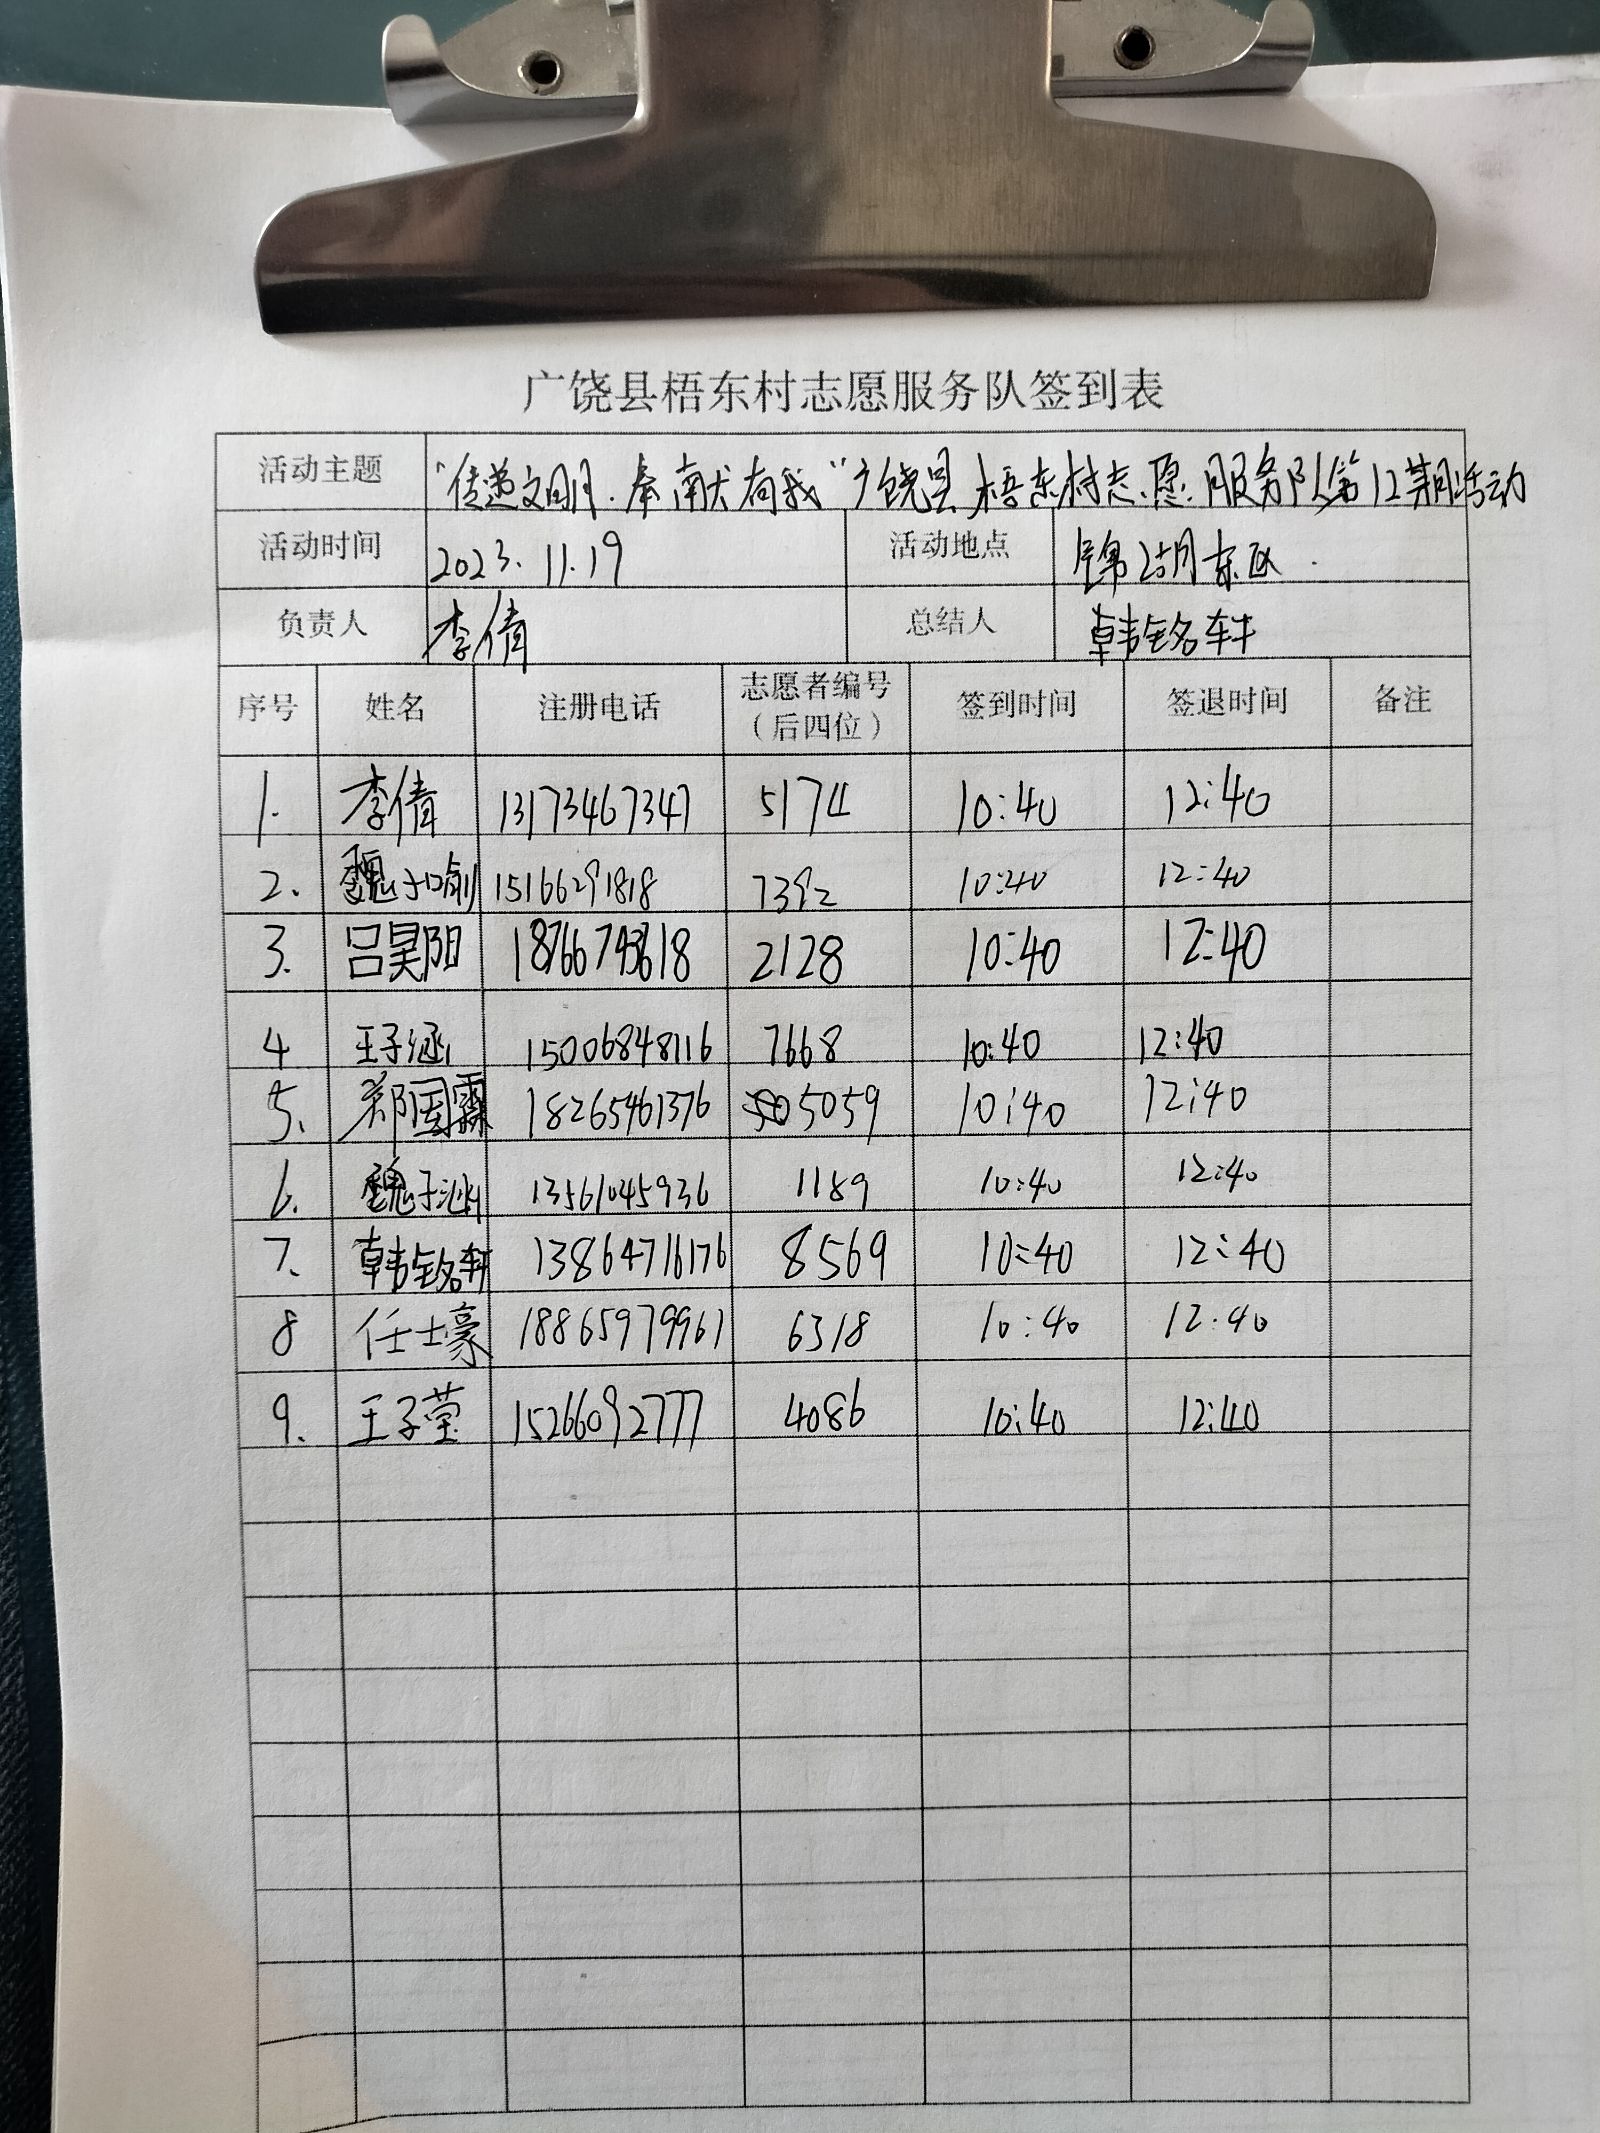 广饶县梧东村志愿服务队签到表
活动主题 "传递文明.奉献有我"广饶县梧东村志愿服务队第12期活动
活动时间 2023.11.19 活动地点 锦湖东区.
负责人 李倩 总结人 韩铭轩
序号 姓名 注册电话 志愿者编号（后四位） 签到时间 签退时间 备注
1. 李倩 13173467347 5174 10:40 12:40
2. 魏子喻 15166291818 7392 10:40 12:40
3. 吕昊阳 2128 10:40 12:40
4 王子涵 15006848116 7668 10:40 12:40
5. 郑国霖 18265461376 5059 10:40 12:40
6. 魏子涵 13561045936 1189 10:40 12:40
7. 韩铭轩 13864716176 8569 10:40 12:40
8 任士豪 18865979961 6318 10:40 12:40
9. 王子莹 15266092777 4086 10:40 12:40